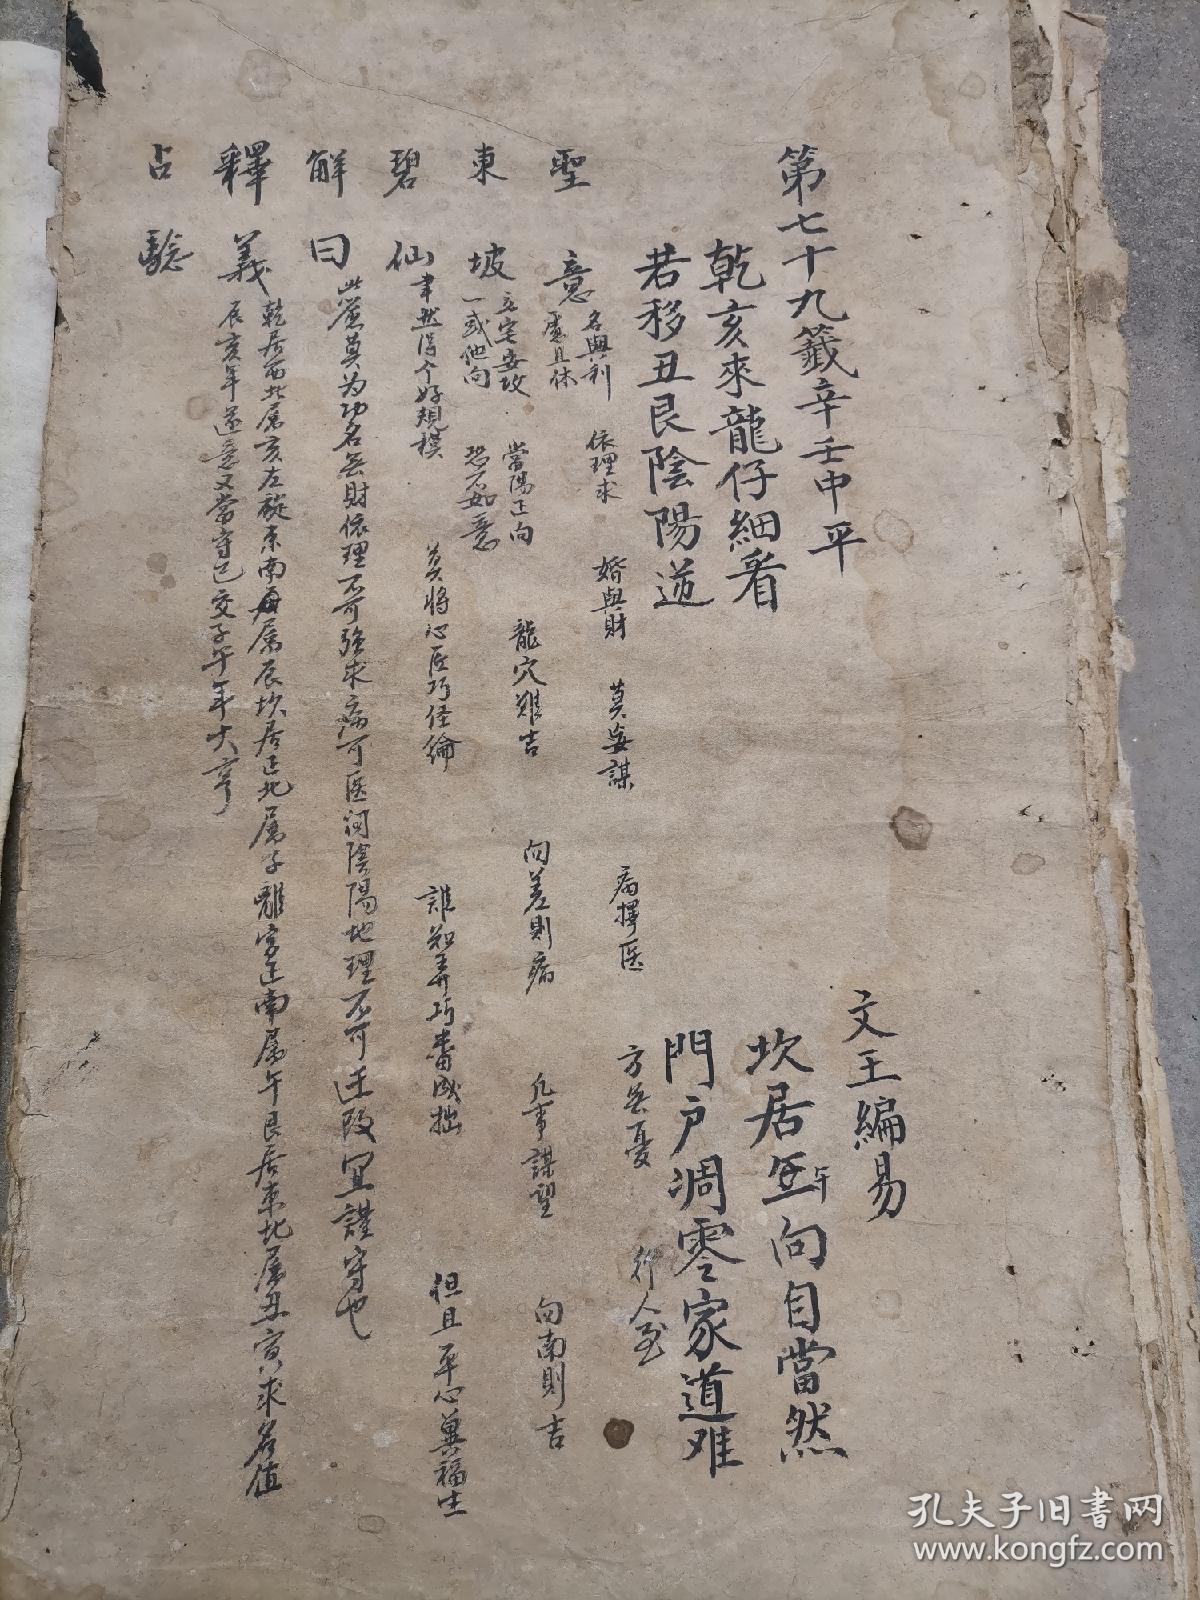 第七十九籤辛壬中平 文王編易
乾亥來龍仔細看 坎居午向自當然
若移丑艮陰陽逆 門户凋零家道难
聖意 名與利 依理求 婚與財 莫妄謀 病擇医 方無憂 行人至 慮且休
東坡 立宅安坟 當陽正向 龍穴雖吉 向差則病 凡事謀望 向南則吉
一或他向 恐不如意
碧仙 聿然得个好規模 莫將心匠巧经綸 誰知弄巧番成拙 但且平心異福生
解曰 此簽莫为功名無財依理不可強求病可医问陰陽地理不可迁改宜謹守也
釋義 乾居西北属亥左旋東南属辰坎居正北属子離宫正南属午艮居東北属丑寅求名值
辰亥年遂意又當守已交子午年大亨
占驗
孔夫子旧書网
www.kongfz.com